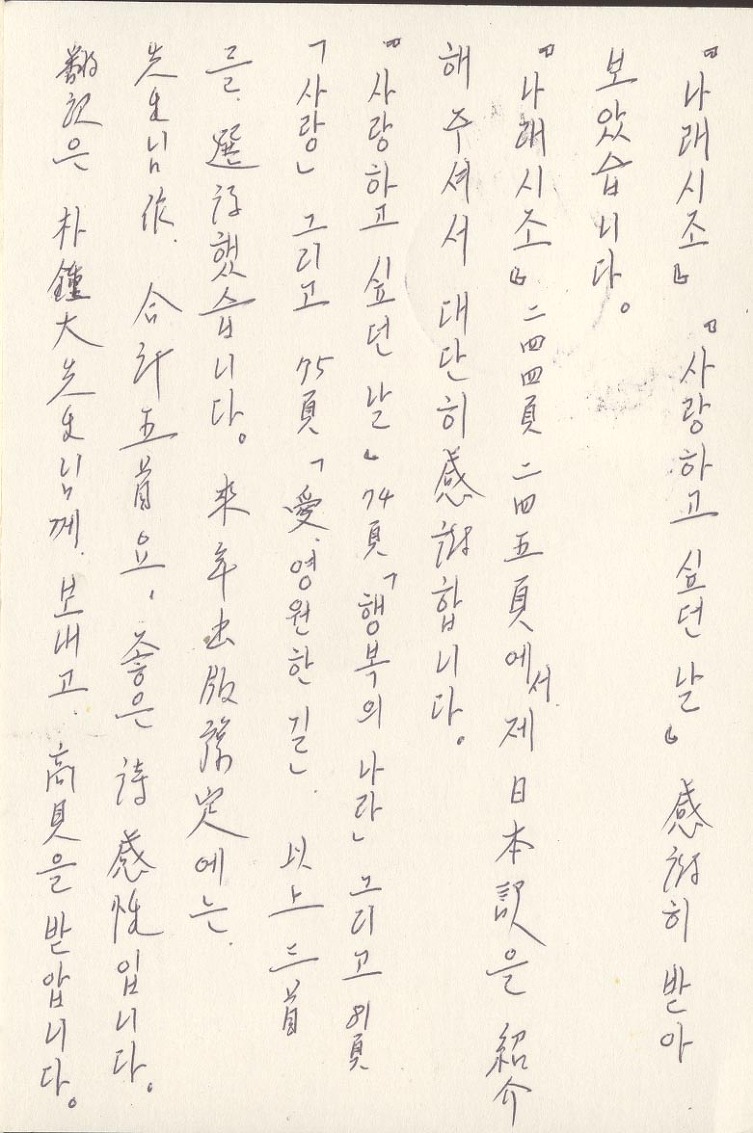 『나래시조』 『사랑하고 싶던 날』 感謝히 받아
보았습니다。
『나래시조』 二四四頁 二四五頁에서 제 日本訳을 紹介
해 주셔서 대단히 感謝합니다。
『사랑하고 싶던 날』 74頁「행복의 나라」 그리고 81頁
「사랑」 그리고 75頁「愛.영원한 길」. 以上 三首
를. 選 했습니다。 来年出版予定에는.
先生님作. 合計五首요, 좋은 詩感性입니다。
翻訳은 朴鐘大先生님께. 보내고. 高見을 받압니다。